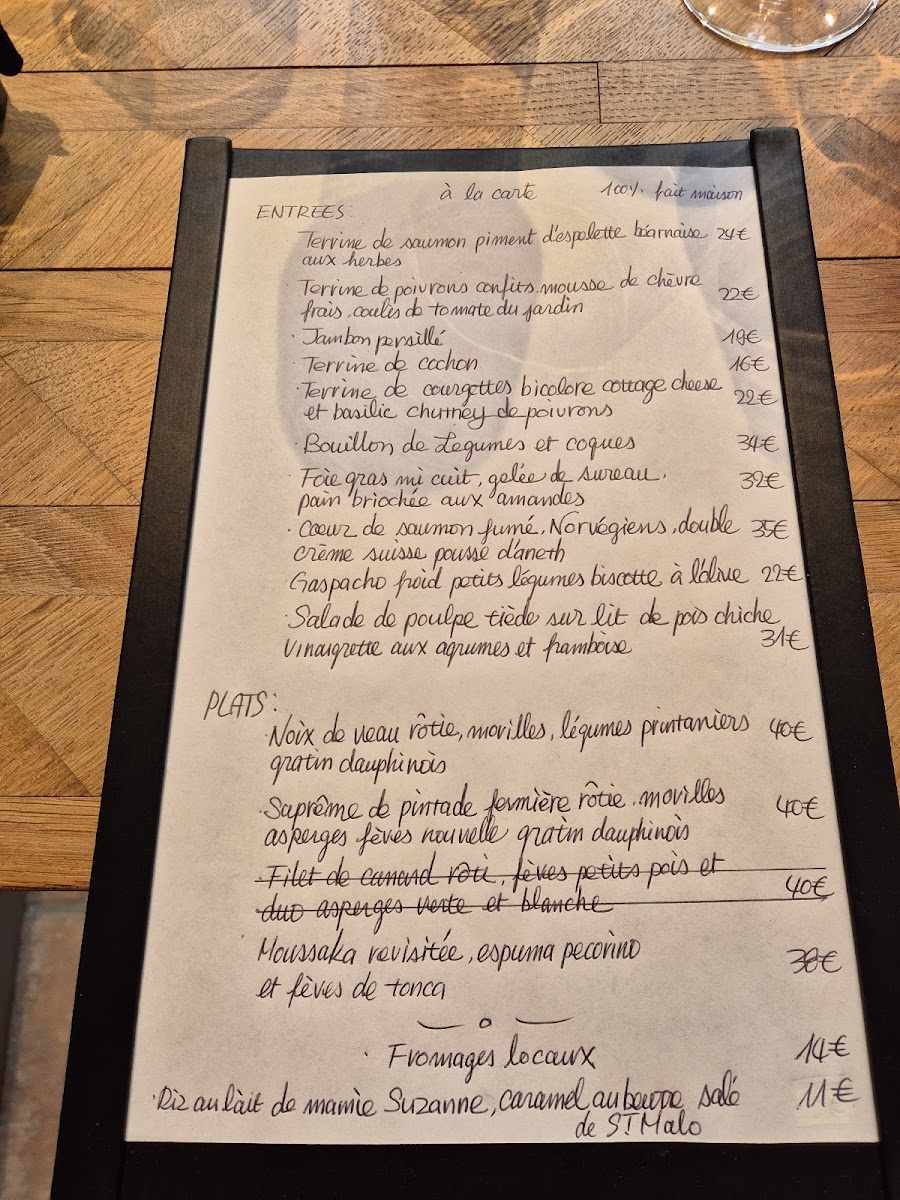 à la carte 100% fait maison
ENTREES:
Terrine de saumon piment d'espelette béarnaise 24€
aux herbes
· Terrine de poivrons confits.mousse de chèvre
frais.coulis de tomate du jardin 22€
· Jambon persillé 19€
· Terrine de cochon 16€
· Terrine de courgettes bicolore cottage cheese
et basilic chutney de poivrons 22€
· Bouillon de Légumes et coques 34€
· Foie gras mi cuit, gelée de sureau.
pain briochée aux amandes 32€
· Coeur de saumon fumé.Norvégiens.double 35€
crème suisse pousse d'aneth
Gaspacho froid petits légumes biscotte à l'olive 22€
· Salade de poulpe tiède sur lit de pois chiche
Vinaigrette aux agrumes et framboise 31€
PLATS:
· Noix de veau rôtie, morilles, légumes printaniers 40€
gratin dauphinois
· Suprême de pintade fermière rôtie.morilles 40€
asperges fèves nouvelle gratin dauphinois
· Filet de canard rôti, fèves petits pois et
duo asperges verte et blanche 40€
Moussaka revisitée, espuma pecorino 38€
et fèves de tonca
· Fromages locaux 14€
· Riz au lait de mamie Suzanne, caramel au beurre salé 11€
de ST Malo